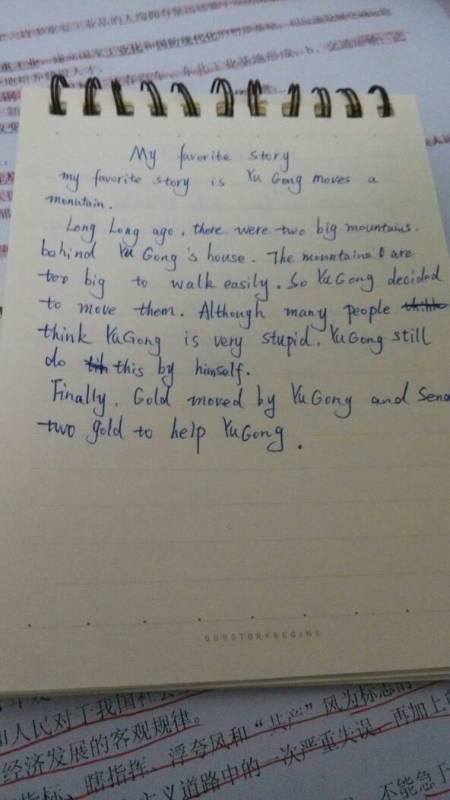 My favorite story
my favorite story is Yu Gong moves a
monutain.
Long Long ago, there were two big mountains.
bohind Yu Gong's house. The mountains are
too big to walk easily. So Yu Gong decided
to move them. Although many people
think YuGong is very stupid. YuGong still
do this by himself.
Finally, Gold moved by YuGong and Send
two gold to help YuGong.
OURSTORYBEGINS
和人民对于我国社会
经济发展的客观规律。
瞎指挥、浮夸风和“共产”风为标志的
主义道路中的一次严重失误，再加上的
不能急于